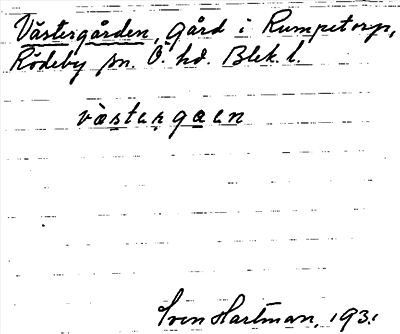 Västergården, gård i Rumpetorp,
Rödeby sn. Ö. hd. Blek. l.
västergaen
Sven Hartman, 1931